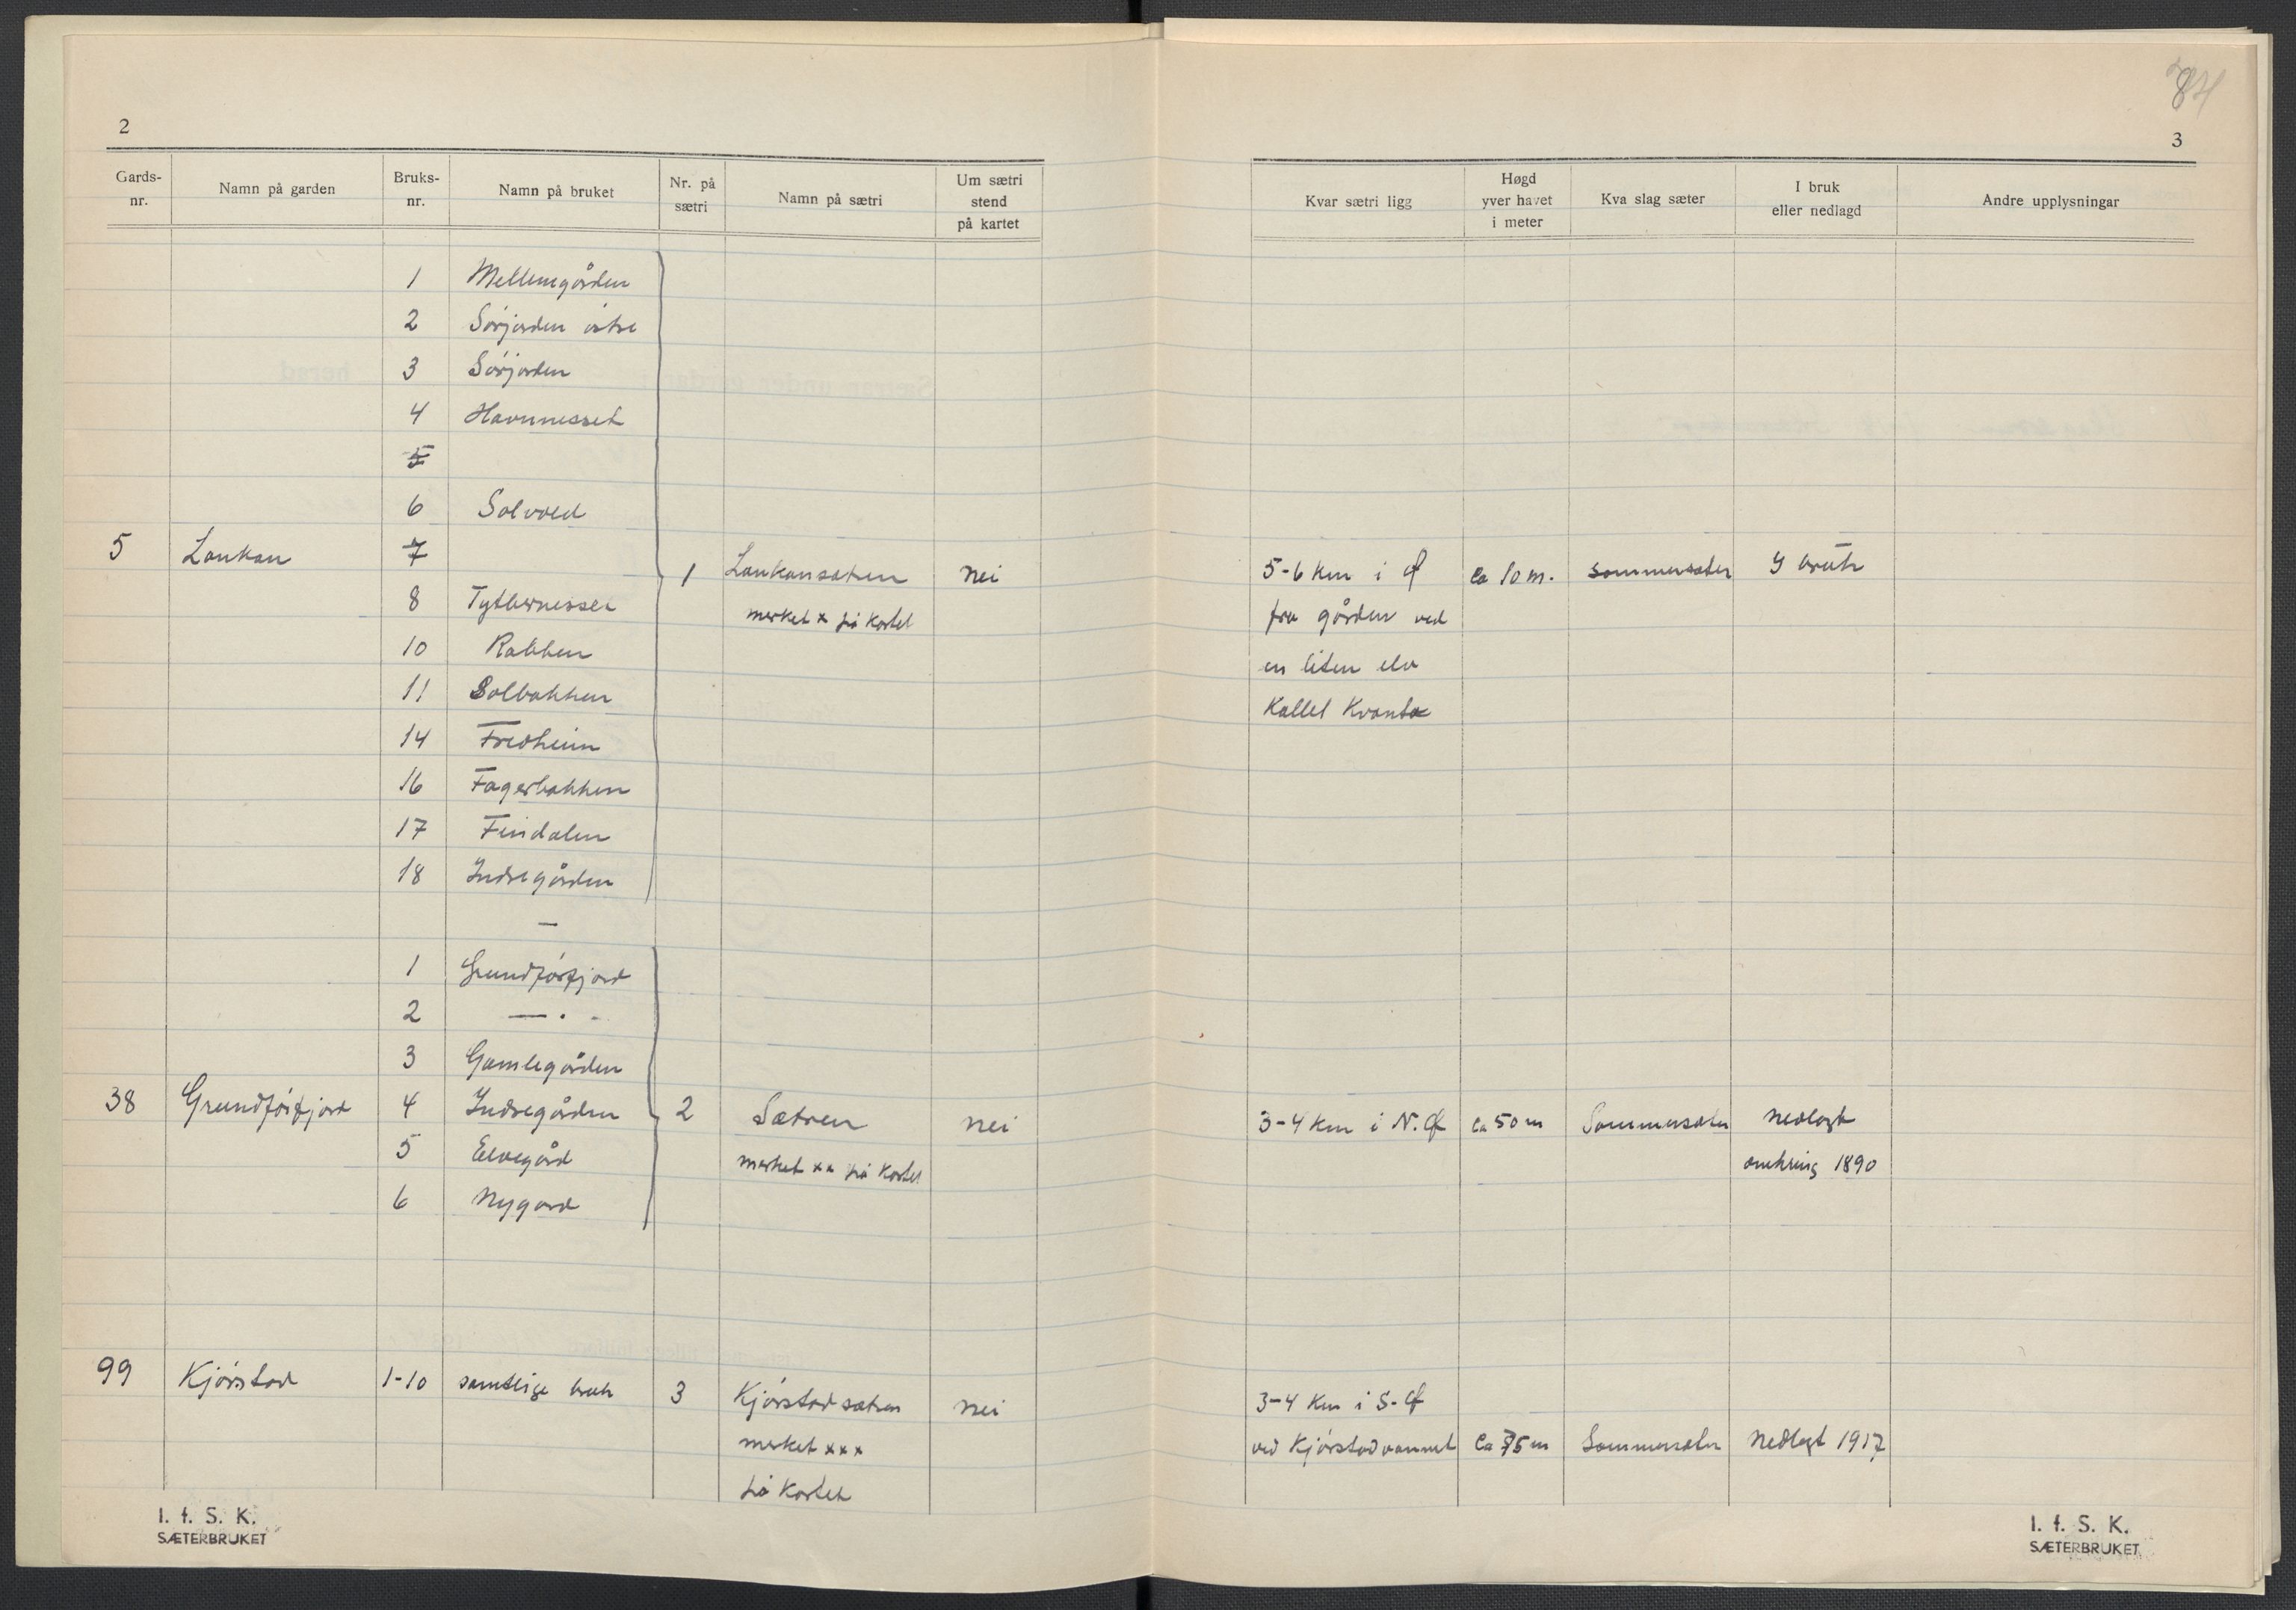 84
2
3
Gards-nr. Namn på garden Bruks-nr. Namn på bruket Nr. på sætri Namn på sætri Um sætri stend på kartet
Kvar sætri ligg Høgd yver havet i meter Kva slag sæter I bruk eller nedlagd Andre upplysningar
1 Mellemgården
2 Sørjorden østre
3 Sørjorden
4 Havnnesset
5
6 Solvold
5 Laukan 7
1 Laukansætren nei 5-6 km i Ø ca 10 m. sommersæter I bruk
8 Tytbernesset
merket x på kartet fra gården ved
10 Rabben
en liten elv
11 Solbakken
kallet Kvanto
14 Fredheim
16 Fagerbakken
17 Findalen
18 Indregården
—
1 Grundførfjord
2 — . -
3 Gamlegården
38 Grundførfjord 4 Indregården 2 Sætren nei 3-4 km i N.Ø ca 50 m Sommersæter nedlagt
5 Elvegård merket xx på kartet omkring 1890
6 Nygård
99 Kjørstad 1-10 samtlige bruk 3 Kjørstadsætren nei 3-4 km i S-Ø
merket xxx ved Kjørstadvannet ca 75 m Sommersæter Nedlagt 1917
på kartet
I. f. S. K.
SÆTERBRUKET
I. f. S. K.
SÆTERBRUKET